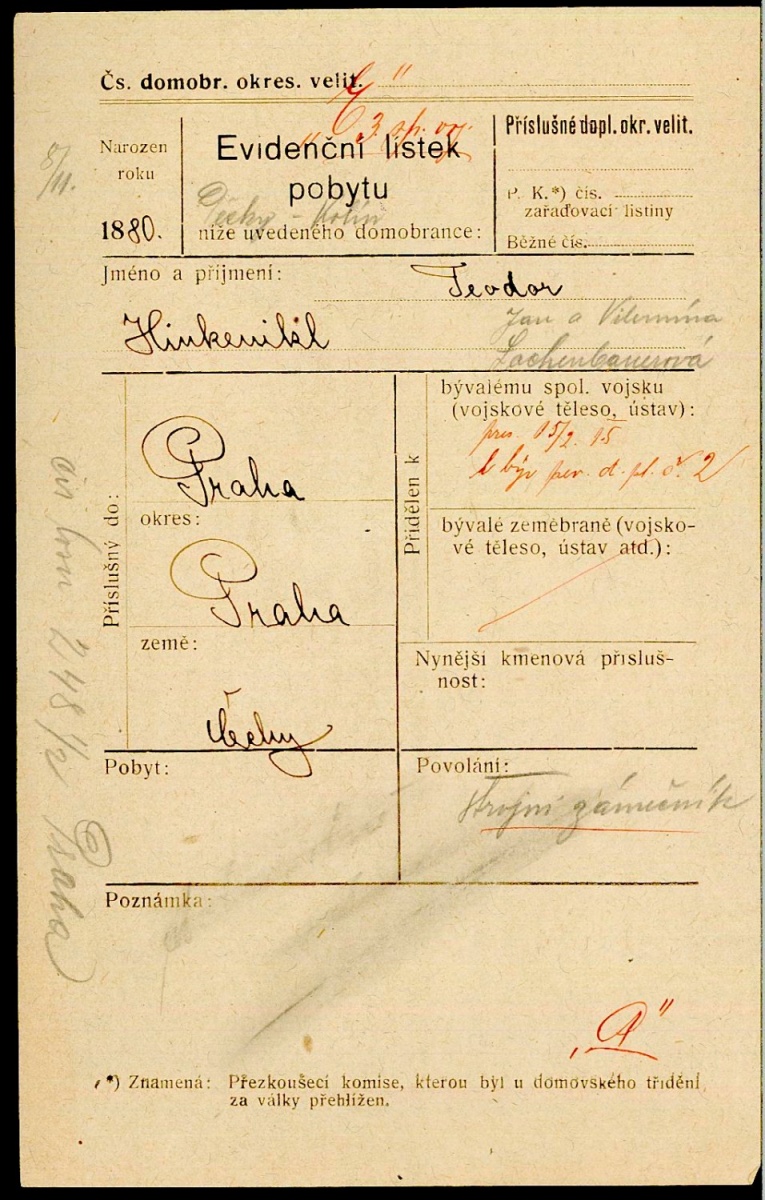 Čs. domobr. okres. velit.
Narozen
roku
1880.
8/11.
„C"
3. sp. voj.
Evidenční lístek
pobytu
Pečky - Kolín
níže uvedeného domobrance:
Příslušné dopl. okr. velit.
P. K.*) čís.
zařaďovací listiny
Běžné čís.
Jméno a příjmení:
Teodor
Hinkenikl
Jan a Vilemína
Lachenbauerová
Příslušný do:
Praha
okres:
Praha
země:
Čechy
Přidělen k
bývalému spol. vojsku
(vojskové těleso, ústav):
pres. 15/2. 15
k býv. pev. d. pl. č. 2
bývalé zeměbraně (vojsko-
vé těleso, ústav atd.):
Nynější kmenová přísluš-
nost:
Pobyt:
Povolání:
Strojní zámečník
Poznámka:
248 1/2 Praha
„A"
*) Znamená: Přezkoušecí komise, kterou byl u domovského třídění
za války přehlížen.